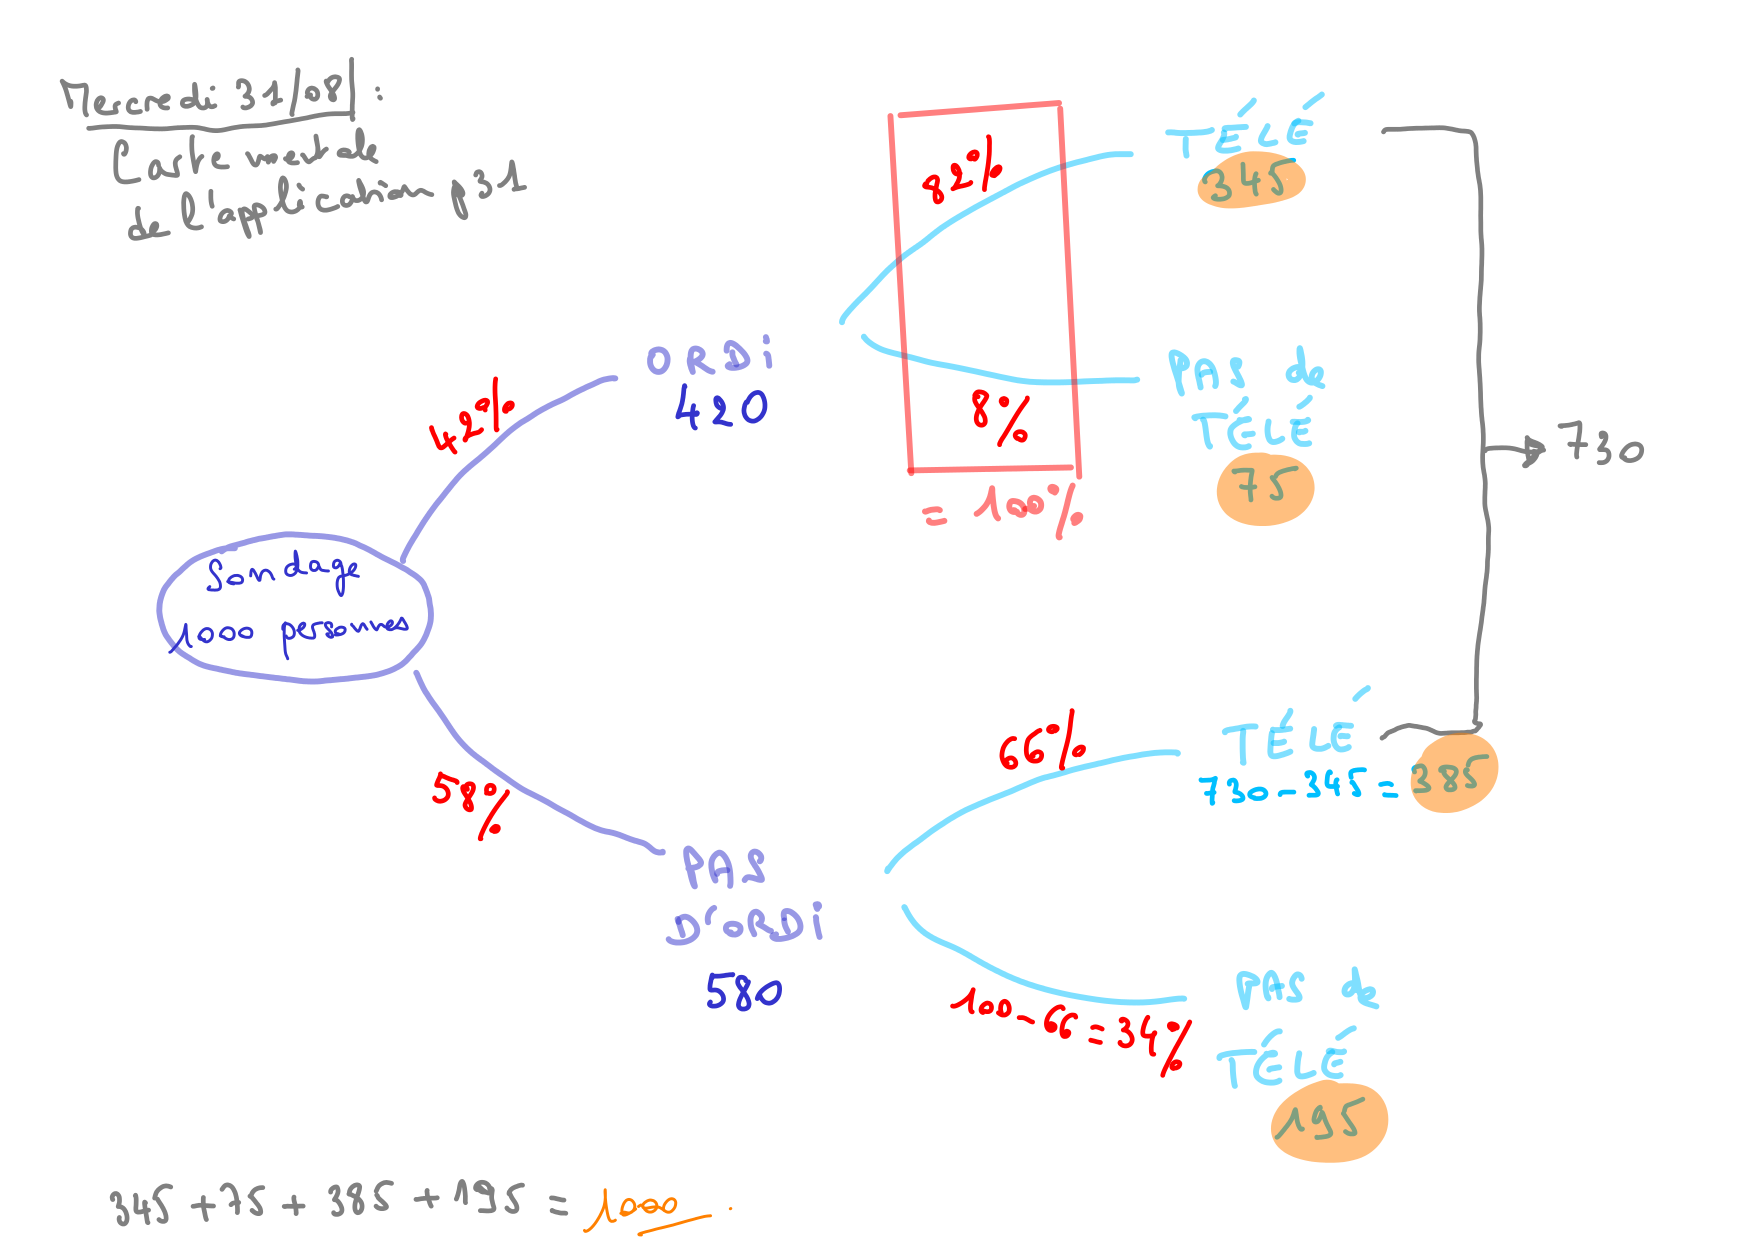 Mercredi 31/08 :
Carte mentale
de l'application p31
82%
TÉLÉ
345
ORDi
420
42%
8%
= 100%
PAS de
TÉLÉ
75
730
Sondage
1000 personnes
58%
PAS
D'ORDi
580
66%
TÉLÉ
730-345=385
100-66=34%
PAS de
TÉLÉ
195
345+75+385+195=1000.